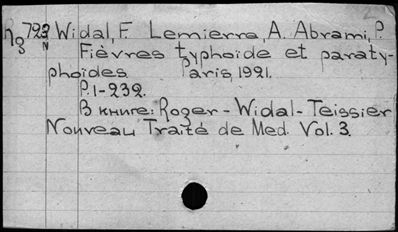 793 Widal, F. Lemierra, A. Abrami, P.
N Fièvres typhoide et paraty-
phoides Paris, 1921.
P. 1-232.
В книге: Roger - Widal - Teissier
Nouveau Traité de Med. Vol. 3.